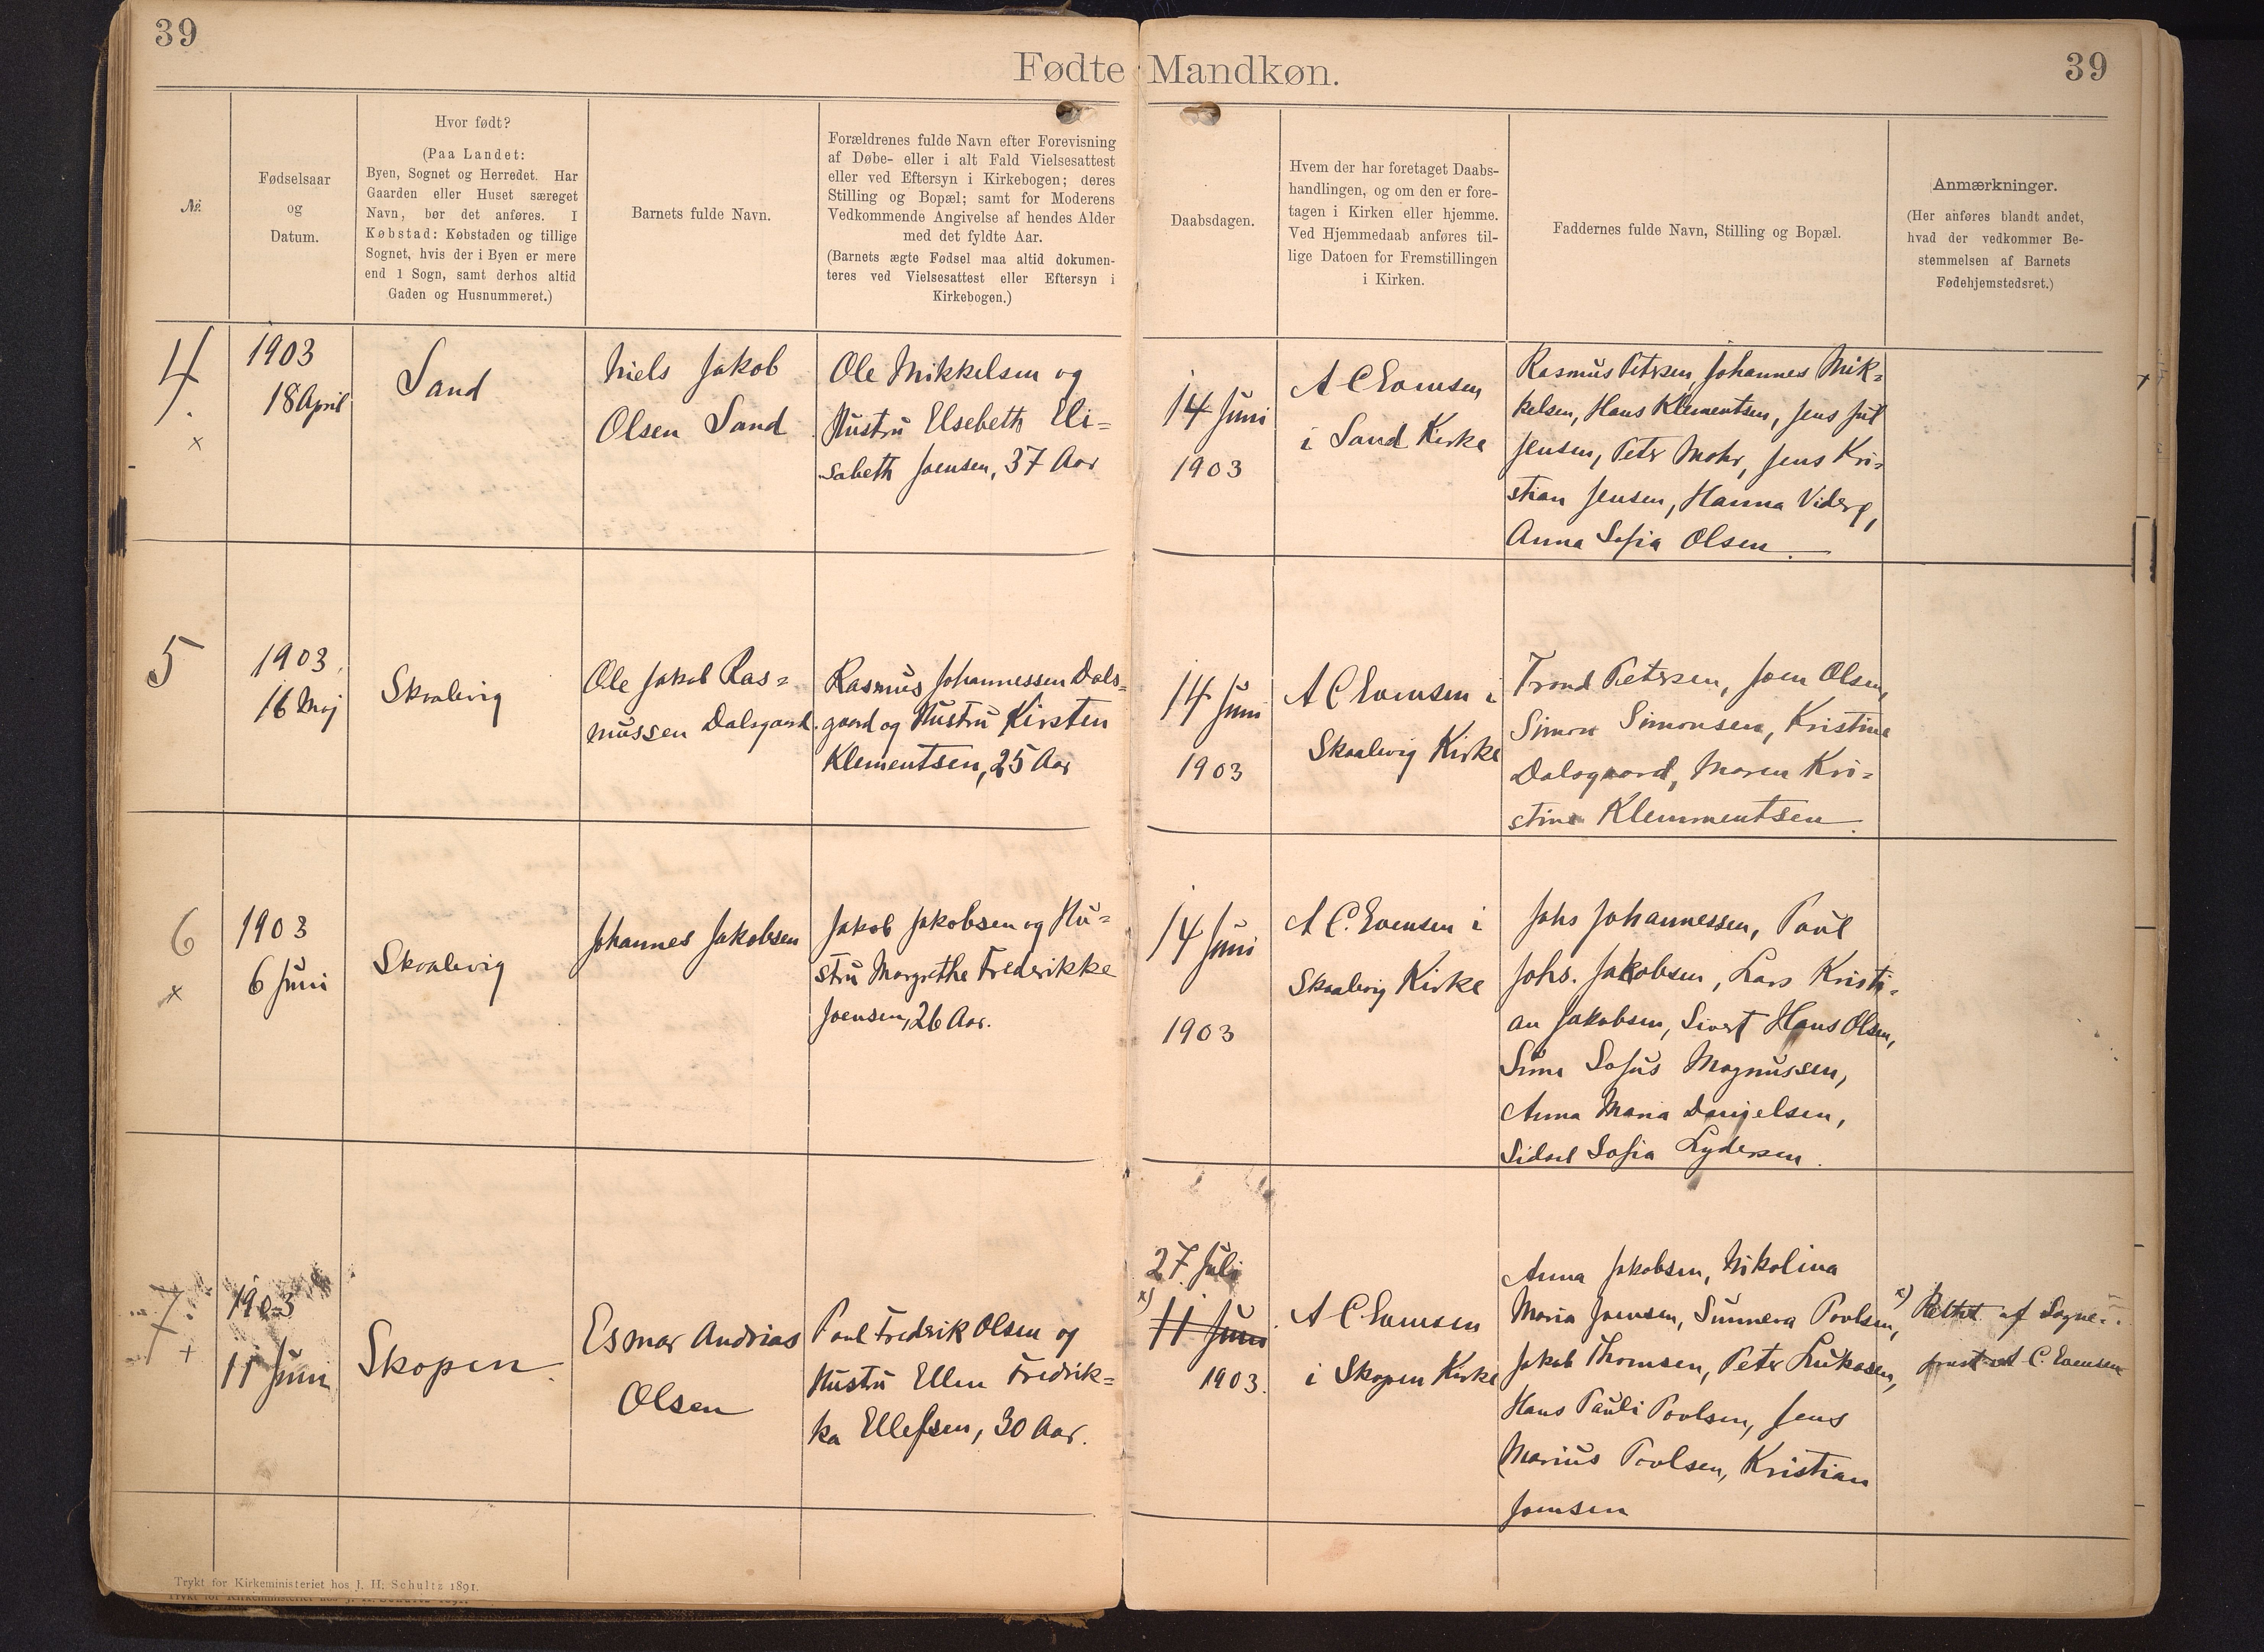 39
39
Fødte Mandkøn.
№.
Fødselsaar
og
Datum.
Hvor født?
(Paa Landet:
Byen, Sognet og Herredet. Har
Gaarden eller Huset særeget
Navn, bør det anføres. I
Købstad: Købstaden og tillige
Sognet, hvis der i Byen er mere
end 1 Sogn, samt derhos altid
Gaden og Husnummeret.)
Barnets fulde Navn.
Forældrenes fulde Navn efter Forevisning
af Døbe- eller i alt Fald Vielsesattest
eller ved Eftersyn i Kirkebogen; deres
Stilling og Bopæl; samt for Moderens
Vedkommende Angivelse af hendes Alder
med det fyldte Aar.
(Barnets ægte Fødsel maa altid dokumen-
teres ved Vielsesattest eller Eftersyn i
Kirkebogen.)
Daabsdagen.
Hvem der har foretaget Daabs-
handlingen, og om den er fore-
tagen i Kirken eller hjemme.
Ved Hjemmedaab anføres til-
lige Datoen for Fremstillingen
i Kirken.
Faddernes fulde Navn, Stilling og Bopæl.
Anmærkninger.
(Her anføres blandt andet,
hvad der vedkommer Be-
stemmelsen af Barnets
Fødehjemstedsret.)
4.
x
1903
18 April
Sand
Niels Jakob
Olsen Sand
Ole Mikkelsen og
Hustru Elsebeth Eli=
sabeth Joensen, 37 Aar
14 Juni
1903
A C Evensen
i Sand Kirke
Rasmus Petersen, Johannes Mik=
kelsen, Hans Klementsen, Jens Jul
Jensen, Peter Mohr, Jens Kri-
stian Jensen, Hanna Viderø,
Anna Sofia Olsen.
5
1903.
16 Maj
Skaalevig
Ole Jakob Ras=
mussen Dalsgaard.
Rasmus Johannessen Dals=
gaard og Hustru Kirsten
Klementsen, 25 Aar
14 Juni
1903
A C Evensen i
Skaalevig Kirke
Trond Petersen, Joen Olsen,
Simon Simonsen, Kristine
Dalsgaard, Maren Kri=
stine Klemmentsen.
6
x
1903
6 Juni
Skaalevig
Johannes Jakobsen
Jakob Jakobsen og Hu=
stru Margrethe Frederikke
Joensen, 26 Aar.
14 Juni
1903
A C. Evensen i
Skaalevig Kirke
Johs Johannessen, Paul
Johs. Jakobsen, Lars Kristi-
an Jakobsen, Sivert Hans Olsen,
Sofus Magnussen,
Anna Maria Danjelsen,
Sidsel Sofia Lydersen.
7.
+
1903
11 Juni
Skopen.
Esmar Andrias
Olsen
Poul Fredrik Olsen og
Hustru Ellen Fredrik=
ka Ellefsen, 30 Aar.
27. Juli
x) 11 Juni
1903.
A C Evensen
i Skopen Kirke
Anna Jakobsen, Nikolina
Maria Joensen, Sunneva Poulsen,
Jakob Thomsen, Peter Lukasen,
Hans Pauli Poulsen, Jens
Marius Poulsen, Kristian
Joensen
x) Rettet af Sogne=
præst A C. Evensen
Trykt for Kirkeministeriet hos J. H. Schultz 1891.